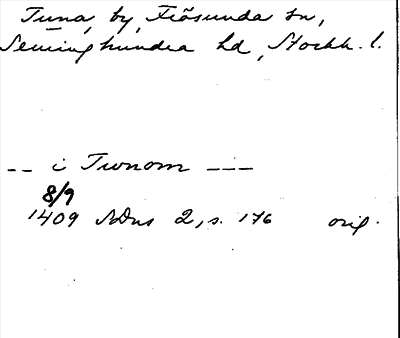 Tuna, by, Fräsunda sn,
Seminghundra hd, Stockh. l.
-- i Twnom ---
8/9
1409 SDns 2, s. 176 orig.